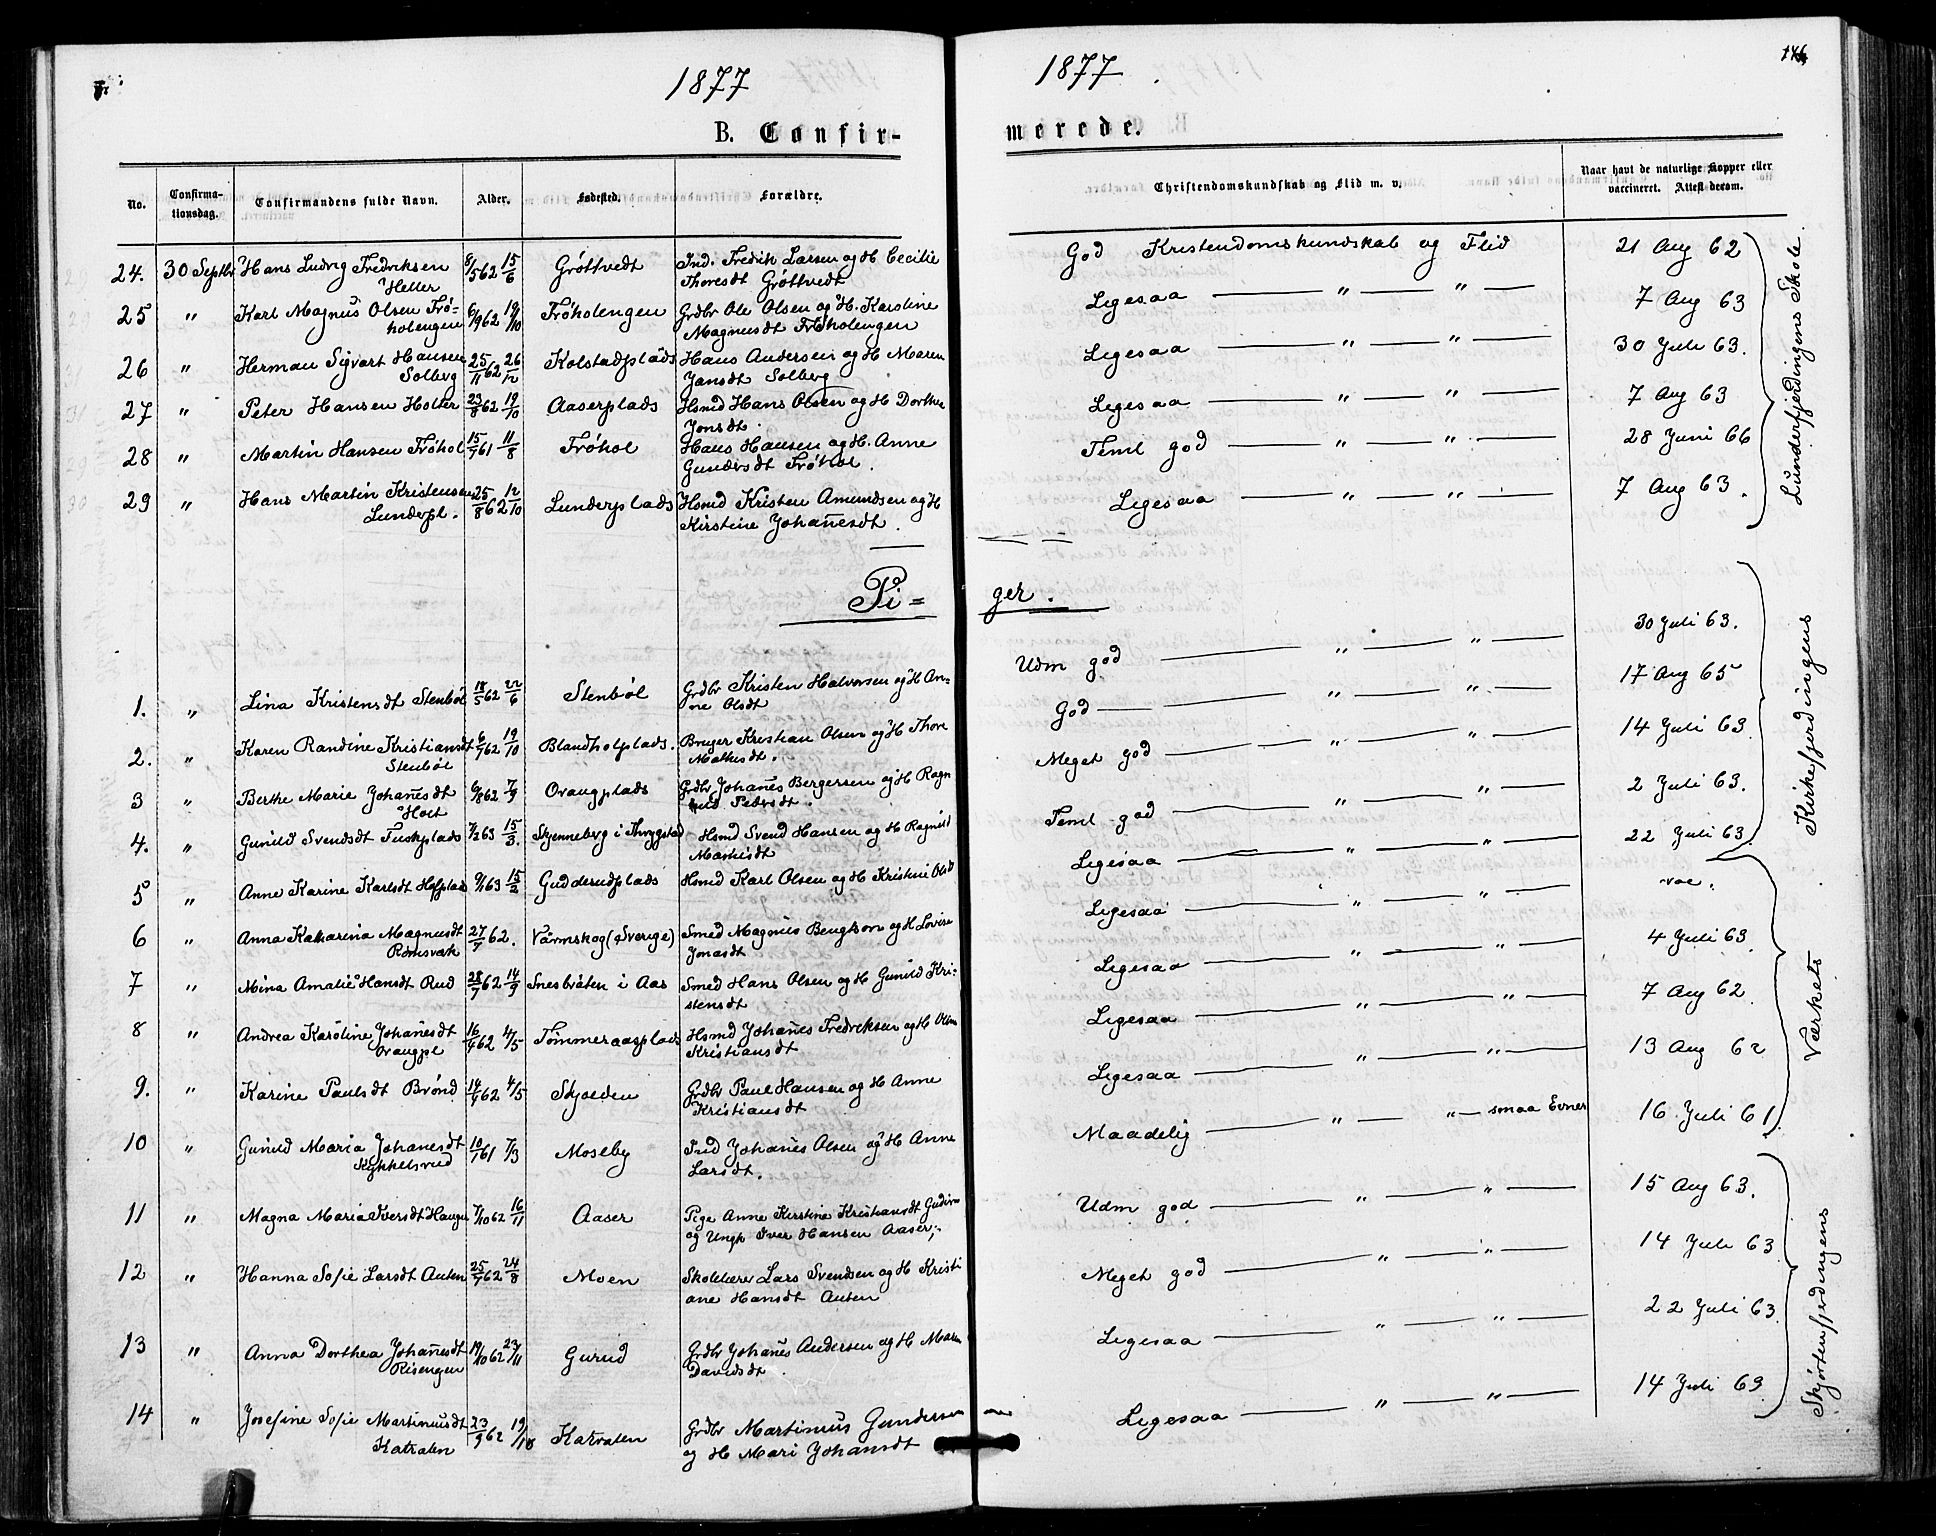 1877
B. Confir-
No.
Confirma-
tionsdag.
Confirmandens fulde Navn.
Alder.
Fødested.
Forældre.
24. 30 Septbr Hans Ludvig Fredriksen 8/5 62 15/6 Gröttvedt Ind. Fredrik Larsen og H Cecilie
Heller Thoresdt Gröttvedt
25 " Karl Magnus Olsen Frö- 6/9 62 19/10 Fröholengen Grdbr Ole Olsen og H. Karoline
holengen Magnusdt Fröholengen
26 " Herman Sigvart Hansen 25/11 62 26/12 Kolstadplads Hans Andersen og H Maren
Solberg Jansdt Solberg
27 " Peter Hansen Holter 23/8 62 19/10 Aaserplads Hsmd Hans Olsen og H Dorthe
Jonsdt.
28 " Martin Hansen Fröhol 15/7 61 11/8 Fröhol Hans Hansen og H. Anne
Gundersdt Fröhol.
29 " Hans Martin Kristensen 25/8 62 12/10 Lunderplads Hsmd Kristen Amundsen og H
Lunderpl. Kirstine Johanesdt.
Pi=
1. " Lina Kristensdt Stenböl 18/5 62 22/6 Stenböl Grdbr Kristen Halvorsen og H An-
ne Olsdt
2. " Karen Randine Kristiansdt 6/7 62 19/10 Blandholplads. Bruger Kristian Olsen og H Thore
Stenböl Mathisdt.
3 " Berthe Marie Johanesdt 6/8 62 7/9 Oraugplads Grdbr Johanes Bergersen og H Ragn
Holt Pedersdt.
4. " Gunild Svendsdt Tuskplads 7/2 63 15/3. Skjenneberg i Thrygstad Hsmd Svend Hansen og H Ragnild
Mathisdt
5 " Anne Karine Karlsdt Hofplads 9/1 63 15/2 Gudderudplads Hsmd Karl Olsen og H Kristine Olsdt
6 " Anna Katharina Magnusdt 27/7 62. Värmskog (Sverige) Smed Magnus Bengtson og H Lovise
Römsvæk Jonasdt
7 " Mina Amalie Hansdt Rud 28/7 62 14/9 Snesbråten i Aas Smed Hans Olsen og H Gunild Kri-
stensdt
8 " Andrea Karoline Johanesdt 16/4 62 4/5 Tömmeraasplads Hsmd Johanes Fredriksen og H Oline
Oraugpl Kristiansdt
9. " Karine Paulsdt Brönd 14/4 62 4/5 Skjolden Grdbr Paul Hansen og H Anne
Kristiansdt
10 " Gunild Maria Johanesdt 10/1 61 7/3 Moseby Ind Johanes Olsen og H Anne
Kykkelsrud Larsdt.
11 " Magna Maria Iversdt Haugen 7/10 62 16/11 Aaser Pige Anne Kirstine Kristiansdt
og Ungk Iver Hansen Aaser;
12 " Hanna Sofie Larsdt Auten 25/7 62 24/8 Moen Skolelærer Lars Svendsen og H Kristi
ane Hansdt Auten
13 " Anna Dorthea Johanesdt 19/10 62 23/11 Gurud Grdbr Johanes Andersen og H Maren
Risengen Davidsdt.
14 " Josefine Sofie Martinusdt 23/9 62 19/10 Katralen Grdbr Martinus Gundersen
Katralen og H Mari Johansdt
1877.
146
merede.
Christendomskundskab og Flid m. v.
Naar havt de naturlige Kopper eller
vaccineret. Attest derom.
God Kristendomskundskab og Flid 21 Aug 62
Ligesaa — " — " — 7 Aug 63
Ligesaa — " — " — 30 Juli 63.
Ligesaa — " — " — 7 Aug 63
Teml god — " — " — 28 Juni 66
Ligesaa — " — " — 7 Aug 63.
Lunderfjerdingens Skole.
ger.
Udm god — " — " — 30 Juli 63.
God — " — " — 17 Aug 65
Meget god — " — " — 14 Juli 63.
Teml god — " — " — 2 Juli 63.
Ligesaa — " — " — 22 Juli 63.
Kirkefjerdingens
Ligesaa — " — " — vac.
Ligesaa — " — " — 4 Juli 63.
Ligesaa — " — " — 7 Aug 62.
Ligesaa — " — " — 13 Aug 62
Maadelig — " — " — smaa Evner 16 Juli 61.
Værkets
Udm god — " — " — 15 Aug 63.
Meget god — " — " — 14 Juli 63
Ligesaa — " — " — 22 Juli 63.
Ligesaa — " — " — 14 Juli 63.
Skjörtenfjerdingens